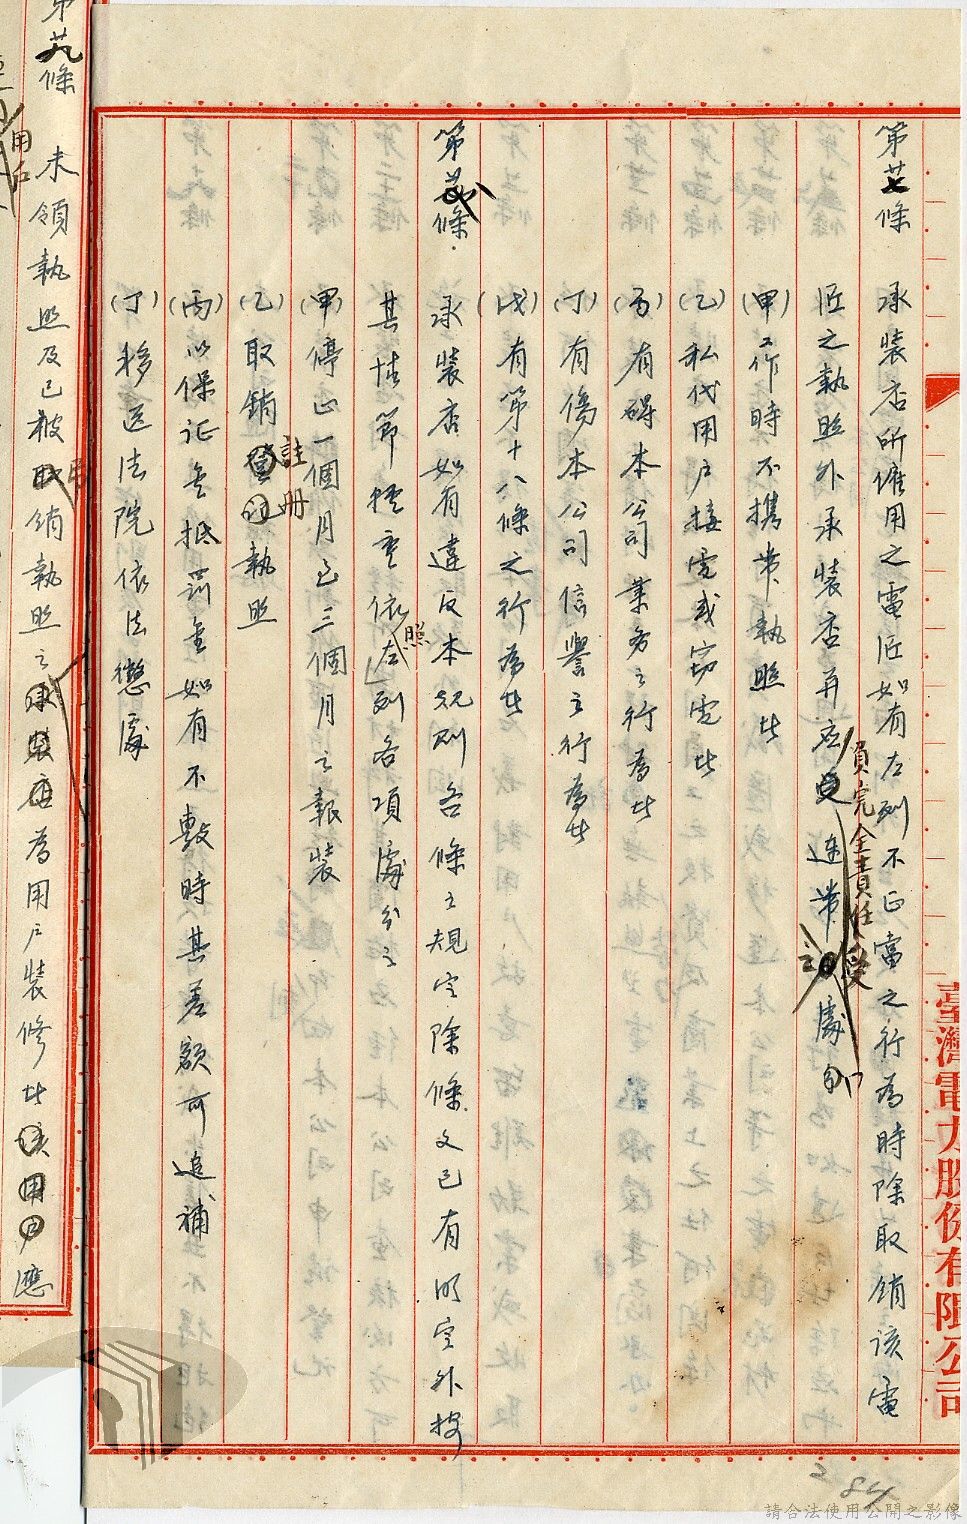 第廿七條 承裝店所僱用之電匠如有左列不正當之行為時除取銷該電
匠之執照外承裝店再应受連帶之處分
負完全責任受
(甲)工作時不携帶執照者
(乙)私代用户接電或窃電者
(丙)有碍本公司業务之行為者
(丁)有傷本公司信譽之行為者
(戊)有第十八條之行為者
第廿八條 承裝店如有違反本規則各條之規定除條文已有明定外按
其情節輕重依左列各項處分之
照
(甲)停止一個月至三個月之報裝
(乙)取銷登记執照
註册
(丙)以保证金抵罰金如有不敷時其差額可追補
(丁)移送法院依法懲處
第廿九條 未領執照及已被取銷執照之承裝店為用户裝修者該用户應
用户
臺灣電力股份有限公司
284
請合法使用公開之影像